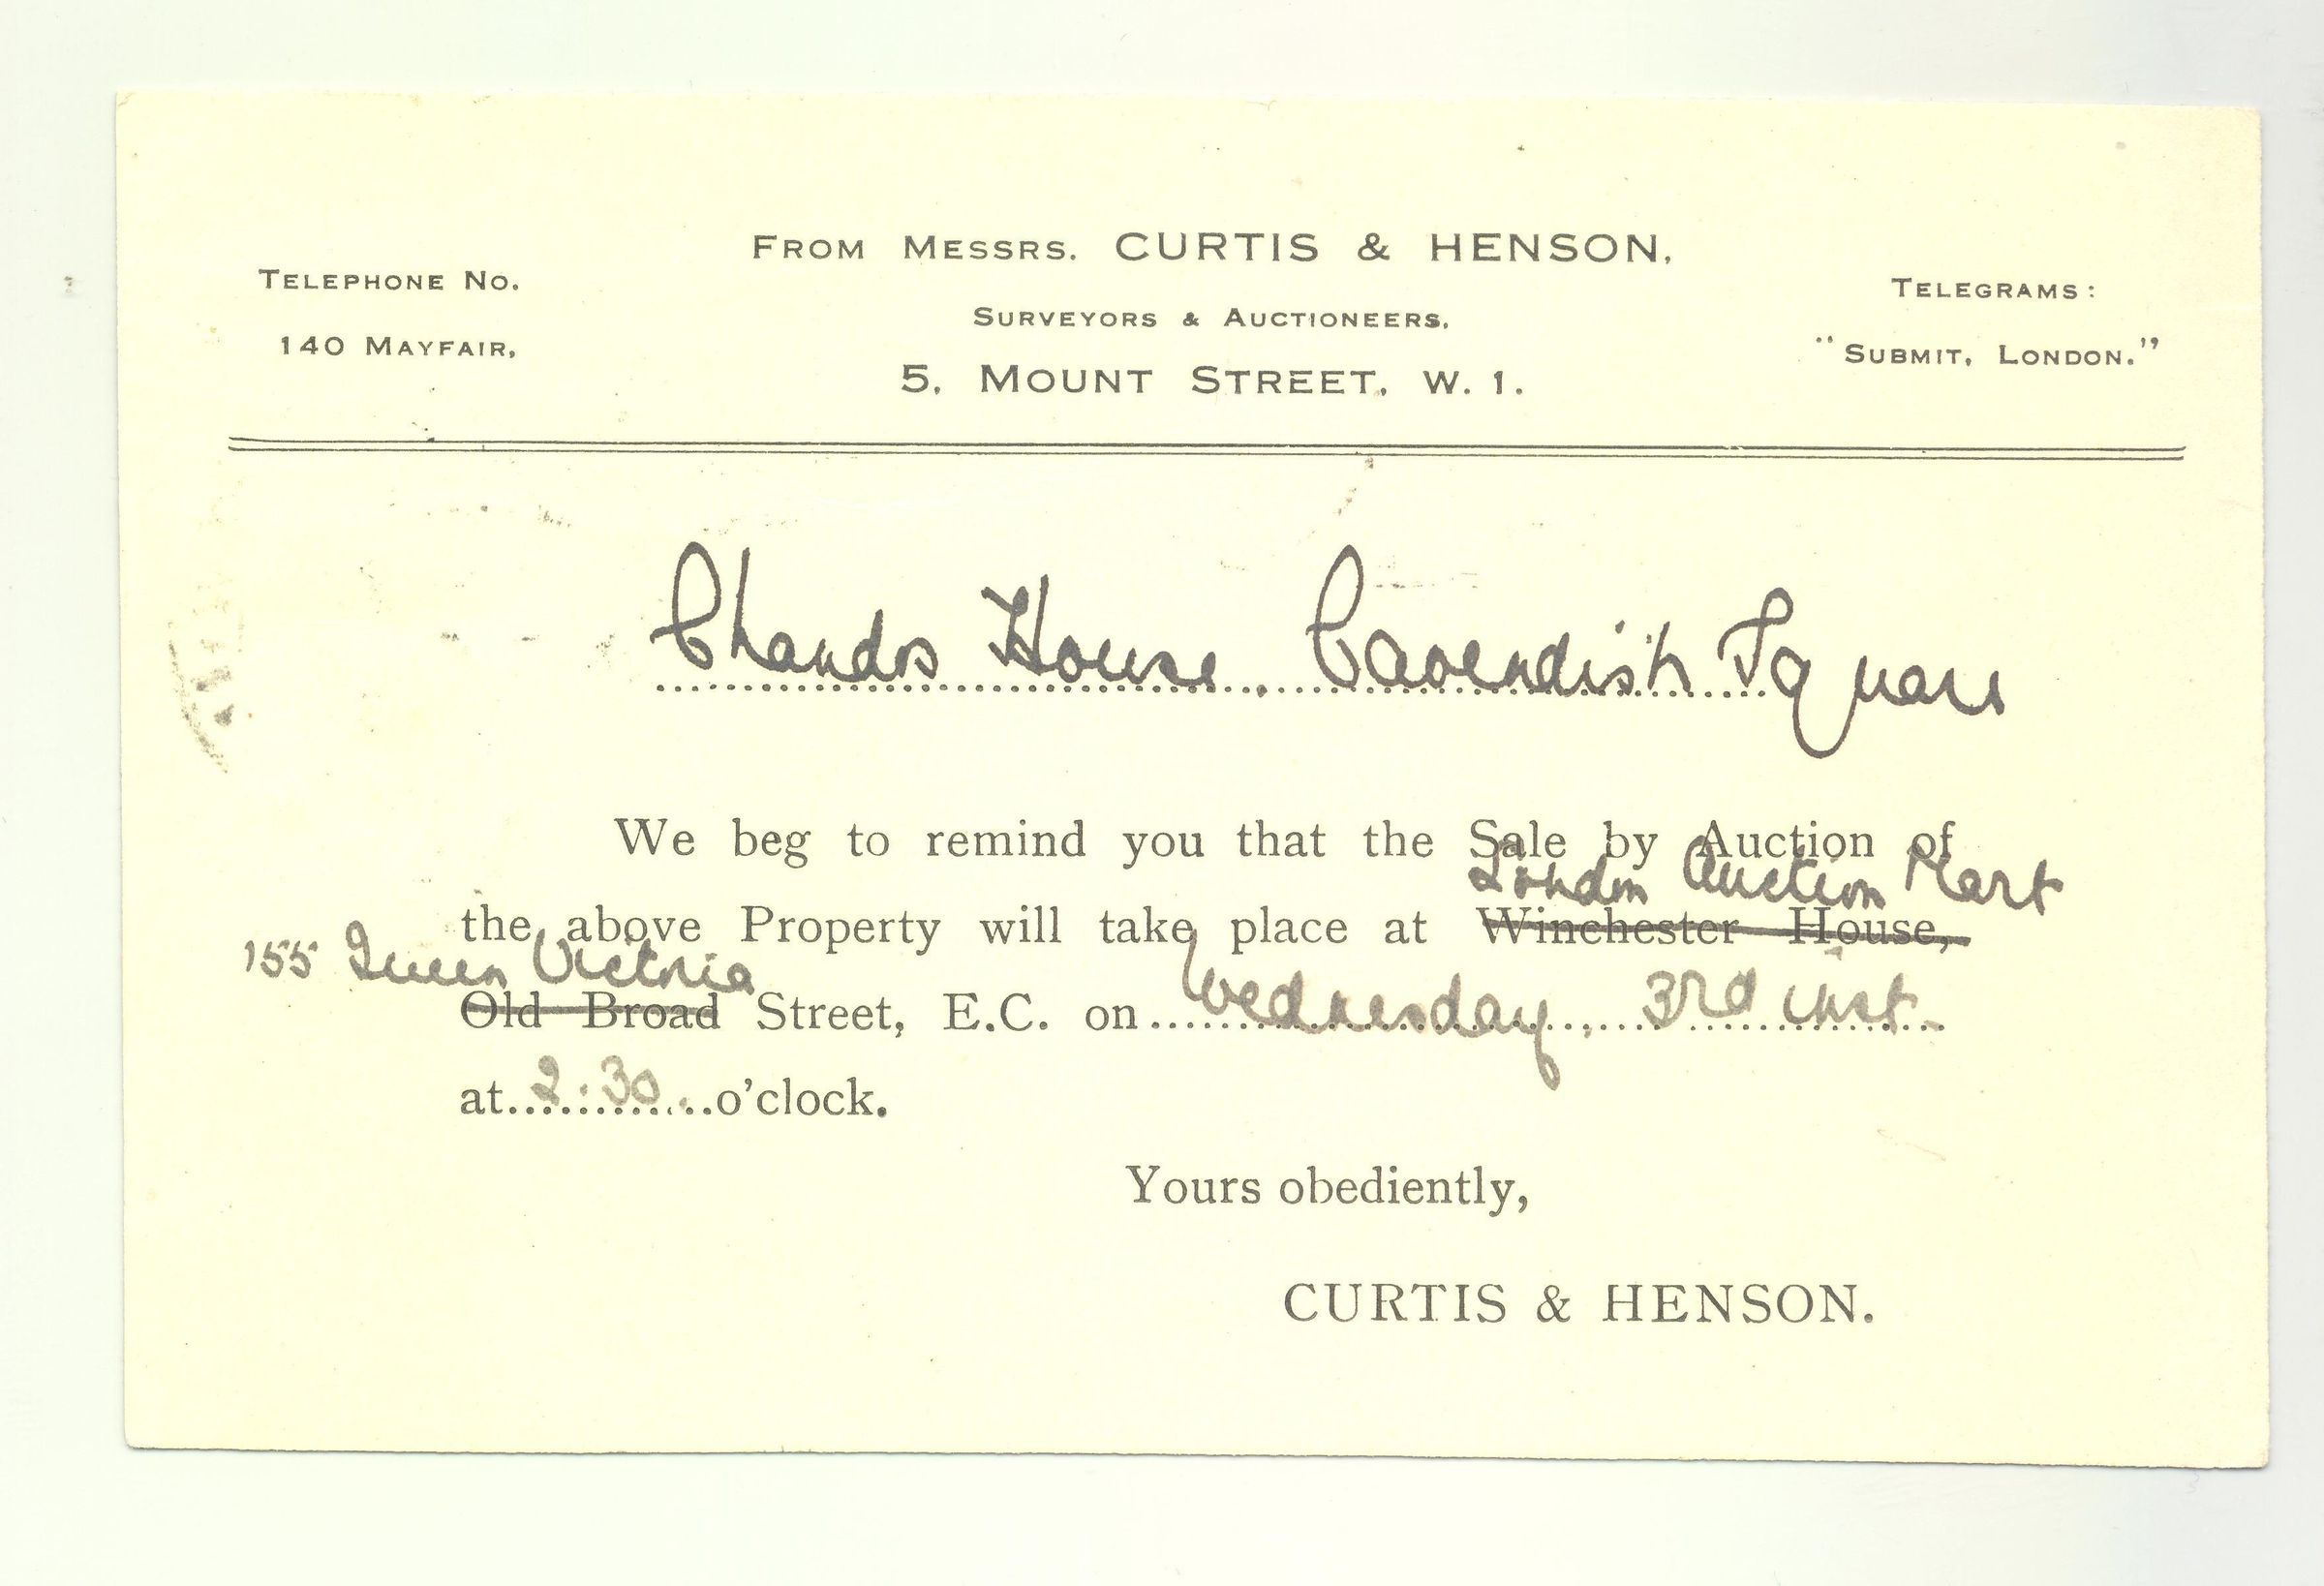 FROM MESSRS. CURTIS & HENSON,
TELEPHONE NO.
SURVEYORS & AUCTIONEERS,
TELEGRAMS:
140 MAYFAIR,
5, MOUNT STREET, W. 1.
"SUBMIT, LONDON."
Chandos House, Cavendish Square
We beg to remind you that the Sale by Auction of
London Auction Mart
the above Property will take place at Winchester House,
155 Queen Victoria
Old Broad Street, E.C. on Wednesday, 3rd inst.
at 2.30 o'clock.
Yours obediently,
CURTIS & HENSON.